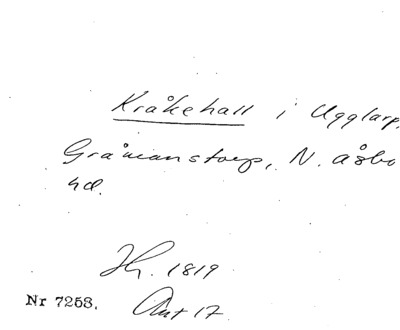 Kråkehall i Ugglarp.
Gråmanstorp, N. Åsbo
hd.
Hr. 1819
Nr 7258. Ant 17